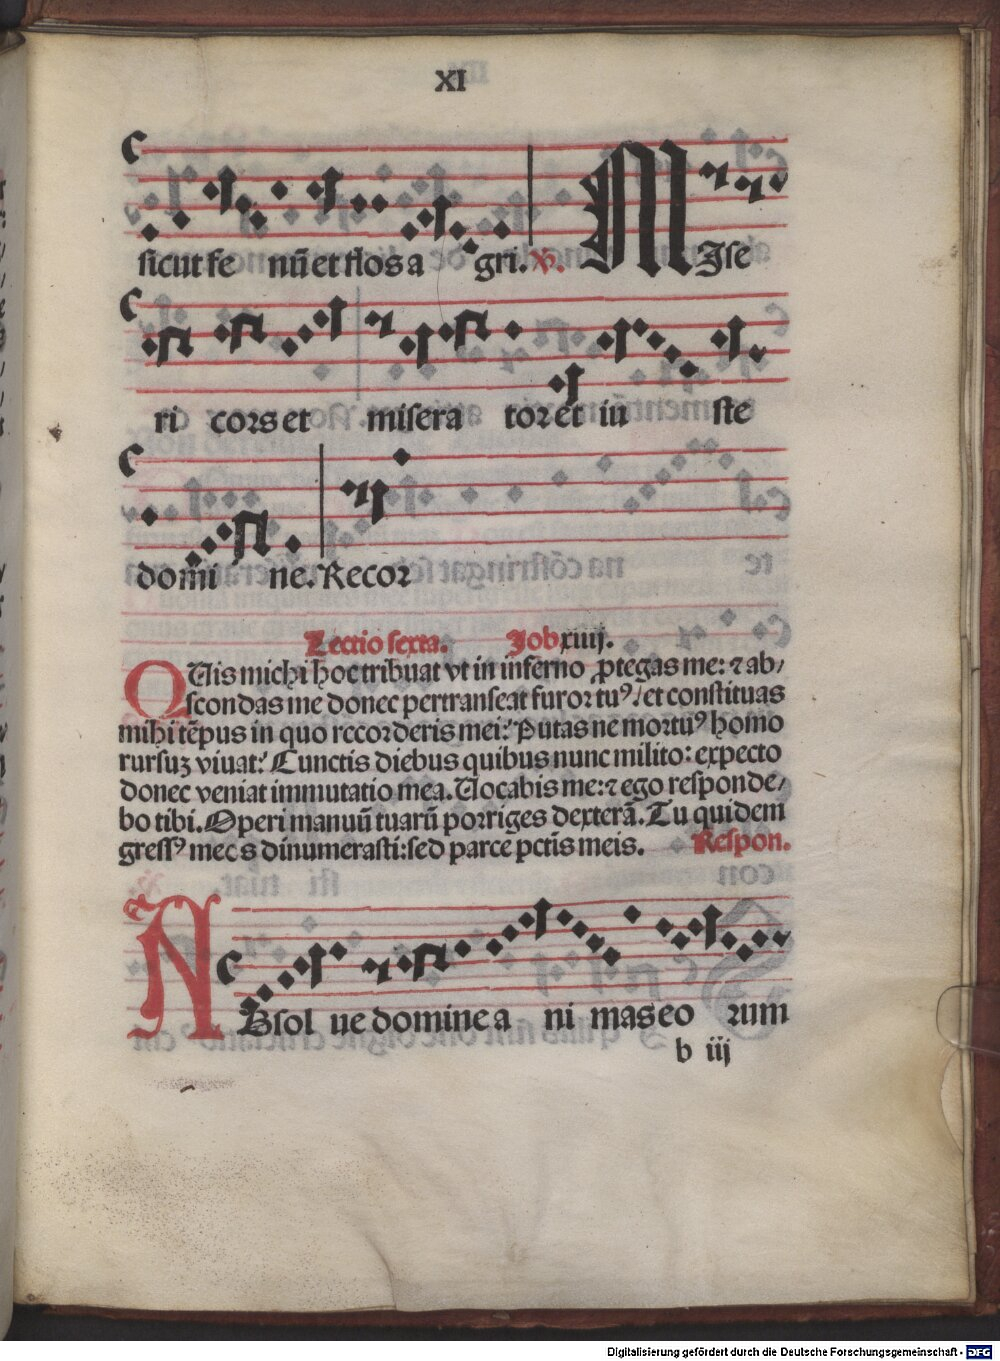 XI
sicut fe nū et flos a gri. ꝟ. MIse
ri cors et misera tor et iu ste
domi ne. Recor
Lectio sexta. Job xiiij.
QUis michi hoc tribuat vt in inferno ꝓtegas me: ⁊ ab/
scondas me donec pertranseat furor tuꝰ/ et constituas
mihi tēpus in quo recorderis mei: Putas ne mortuꝰ homo
rursuꝫ viuat: Cunctis diebus quibus nunc milito: expecto
donec veniat immutatio mea. Uocabis me: ⁊ ego responde/
bo tibi. Operi manuū tuarū porriges dexterā. Tu quidem
gressꝰ meos dinumerasti: sed parce pctīs meis. Respon.
Absol ue domine a ni mas eo rum
b iij
Digitalisierung gefördert durch die Deutsche Forschungsgemeinschaft - DFG